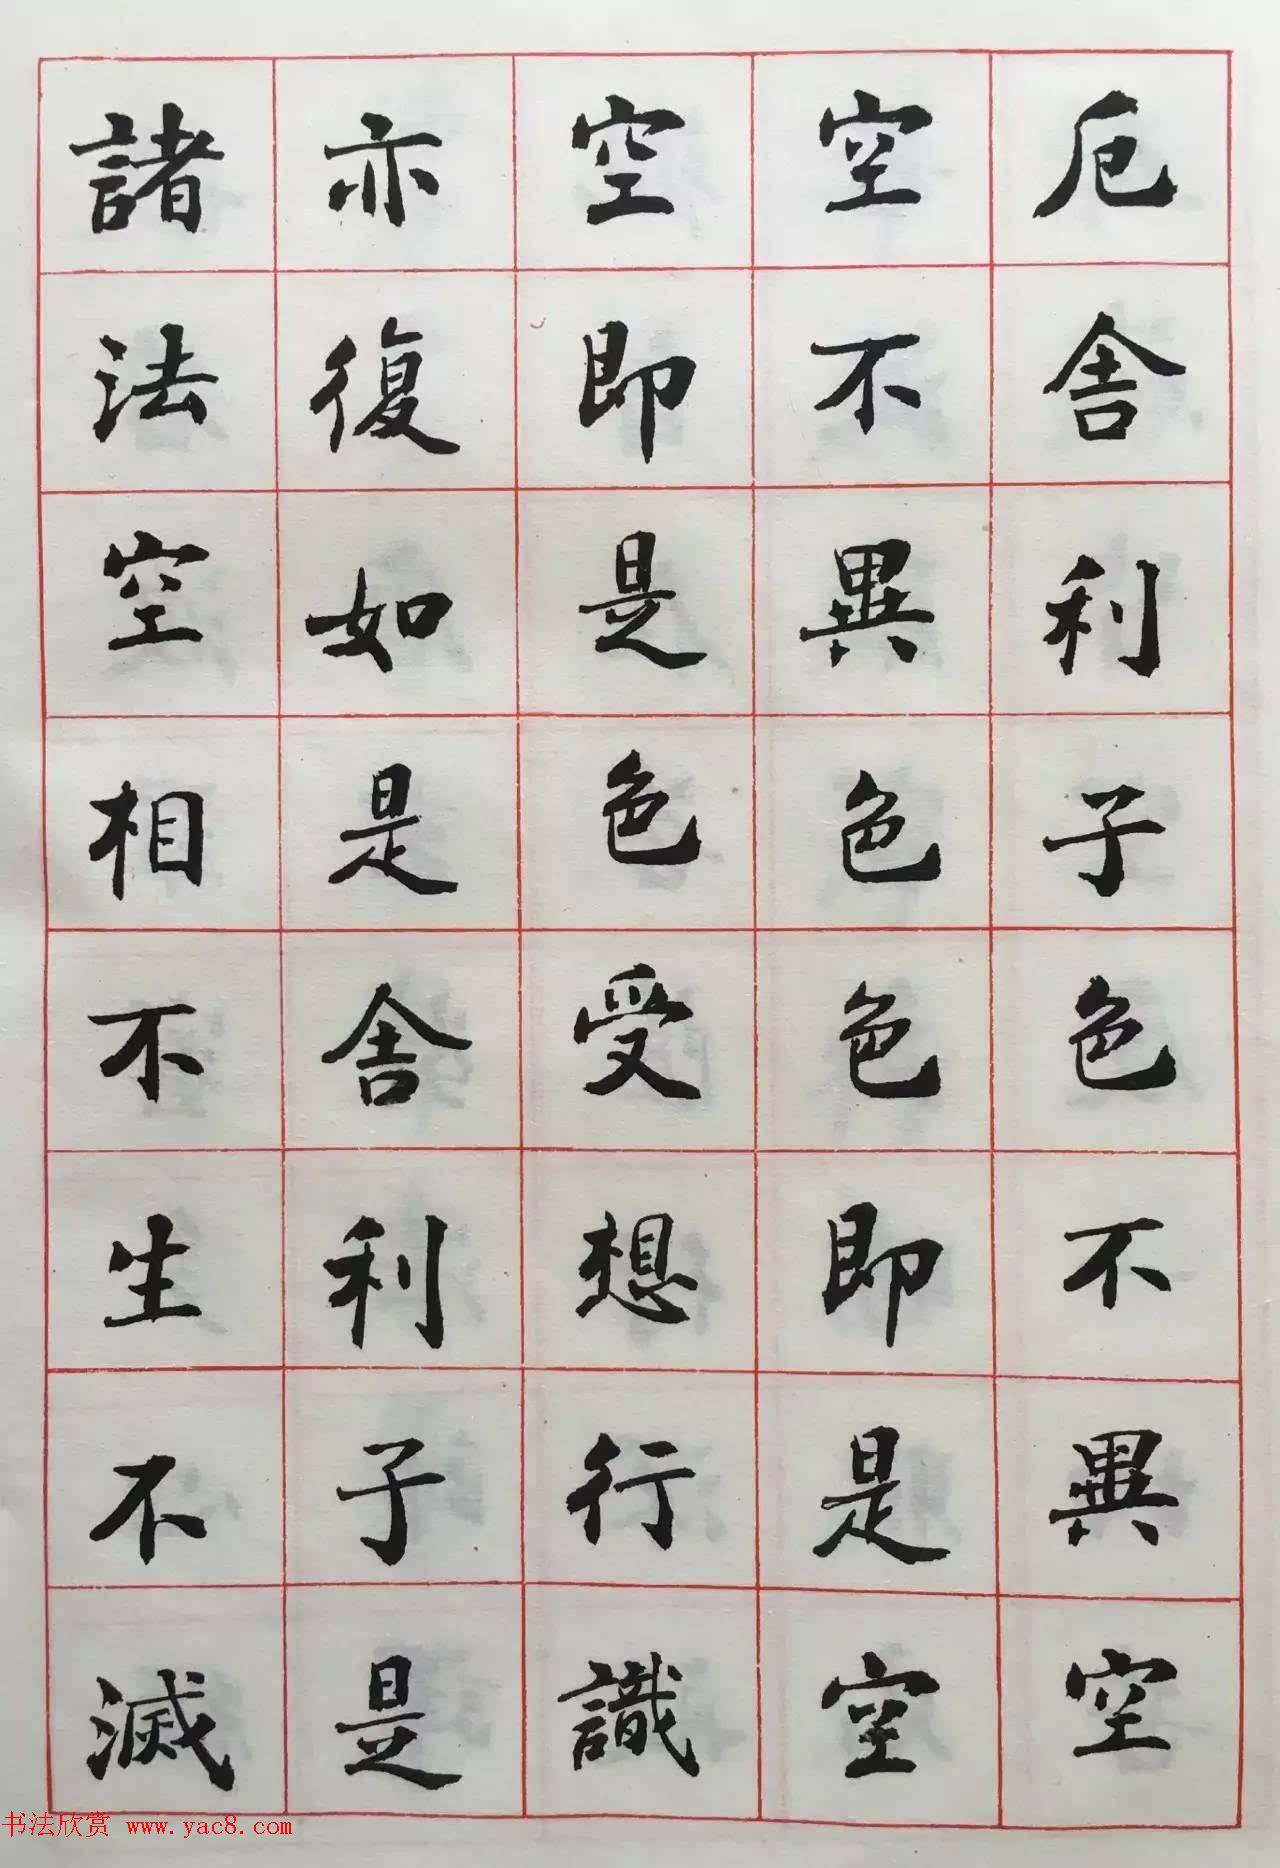 厄舍利子色不異空
空不異色色即是空
空即是色受想行識
亦復如是舍利子是
諸法空相不生不滅
书法欣赏 www.yac8.com